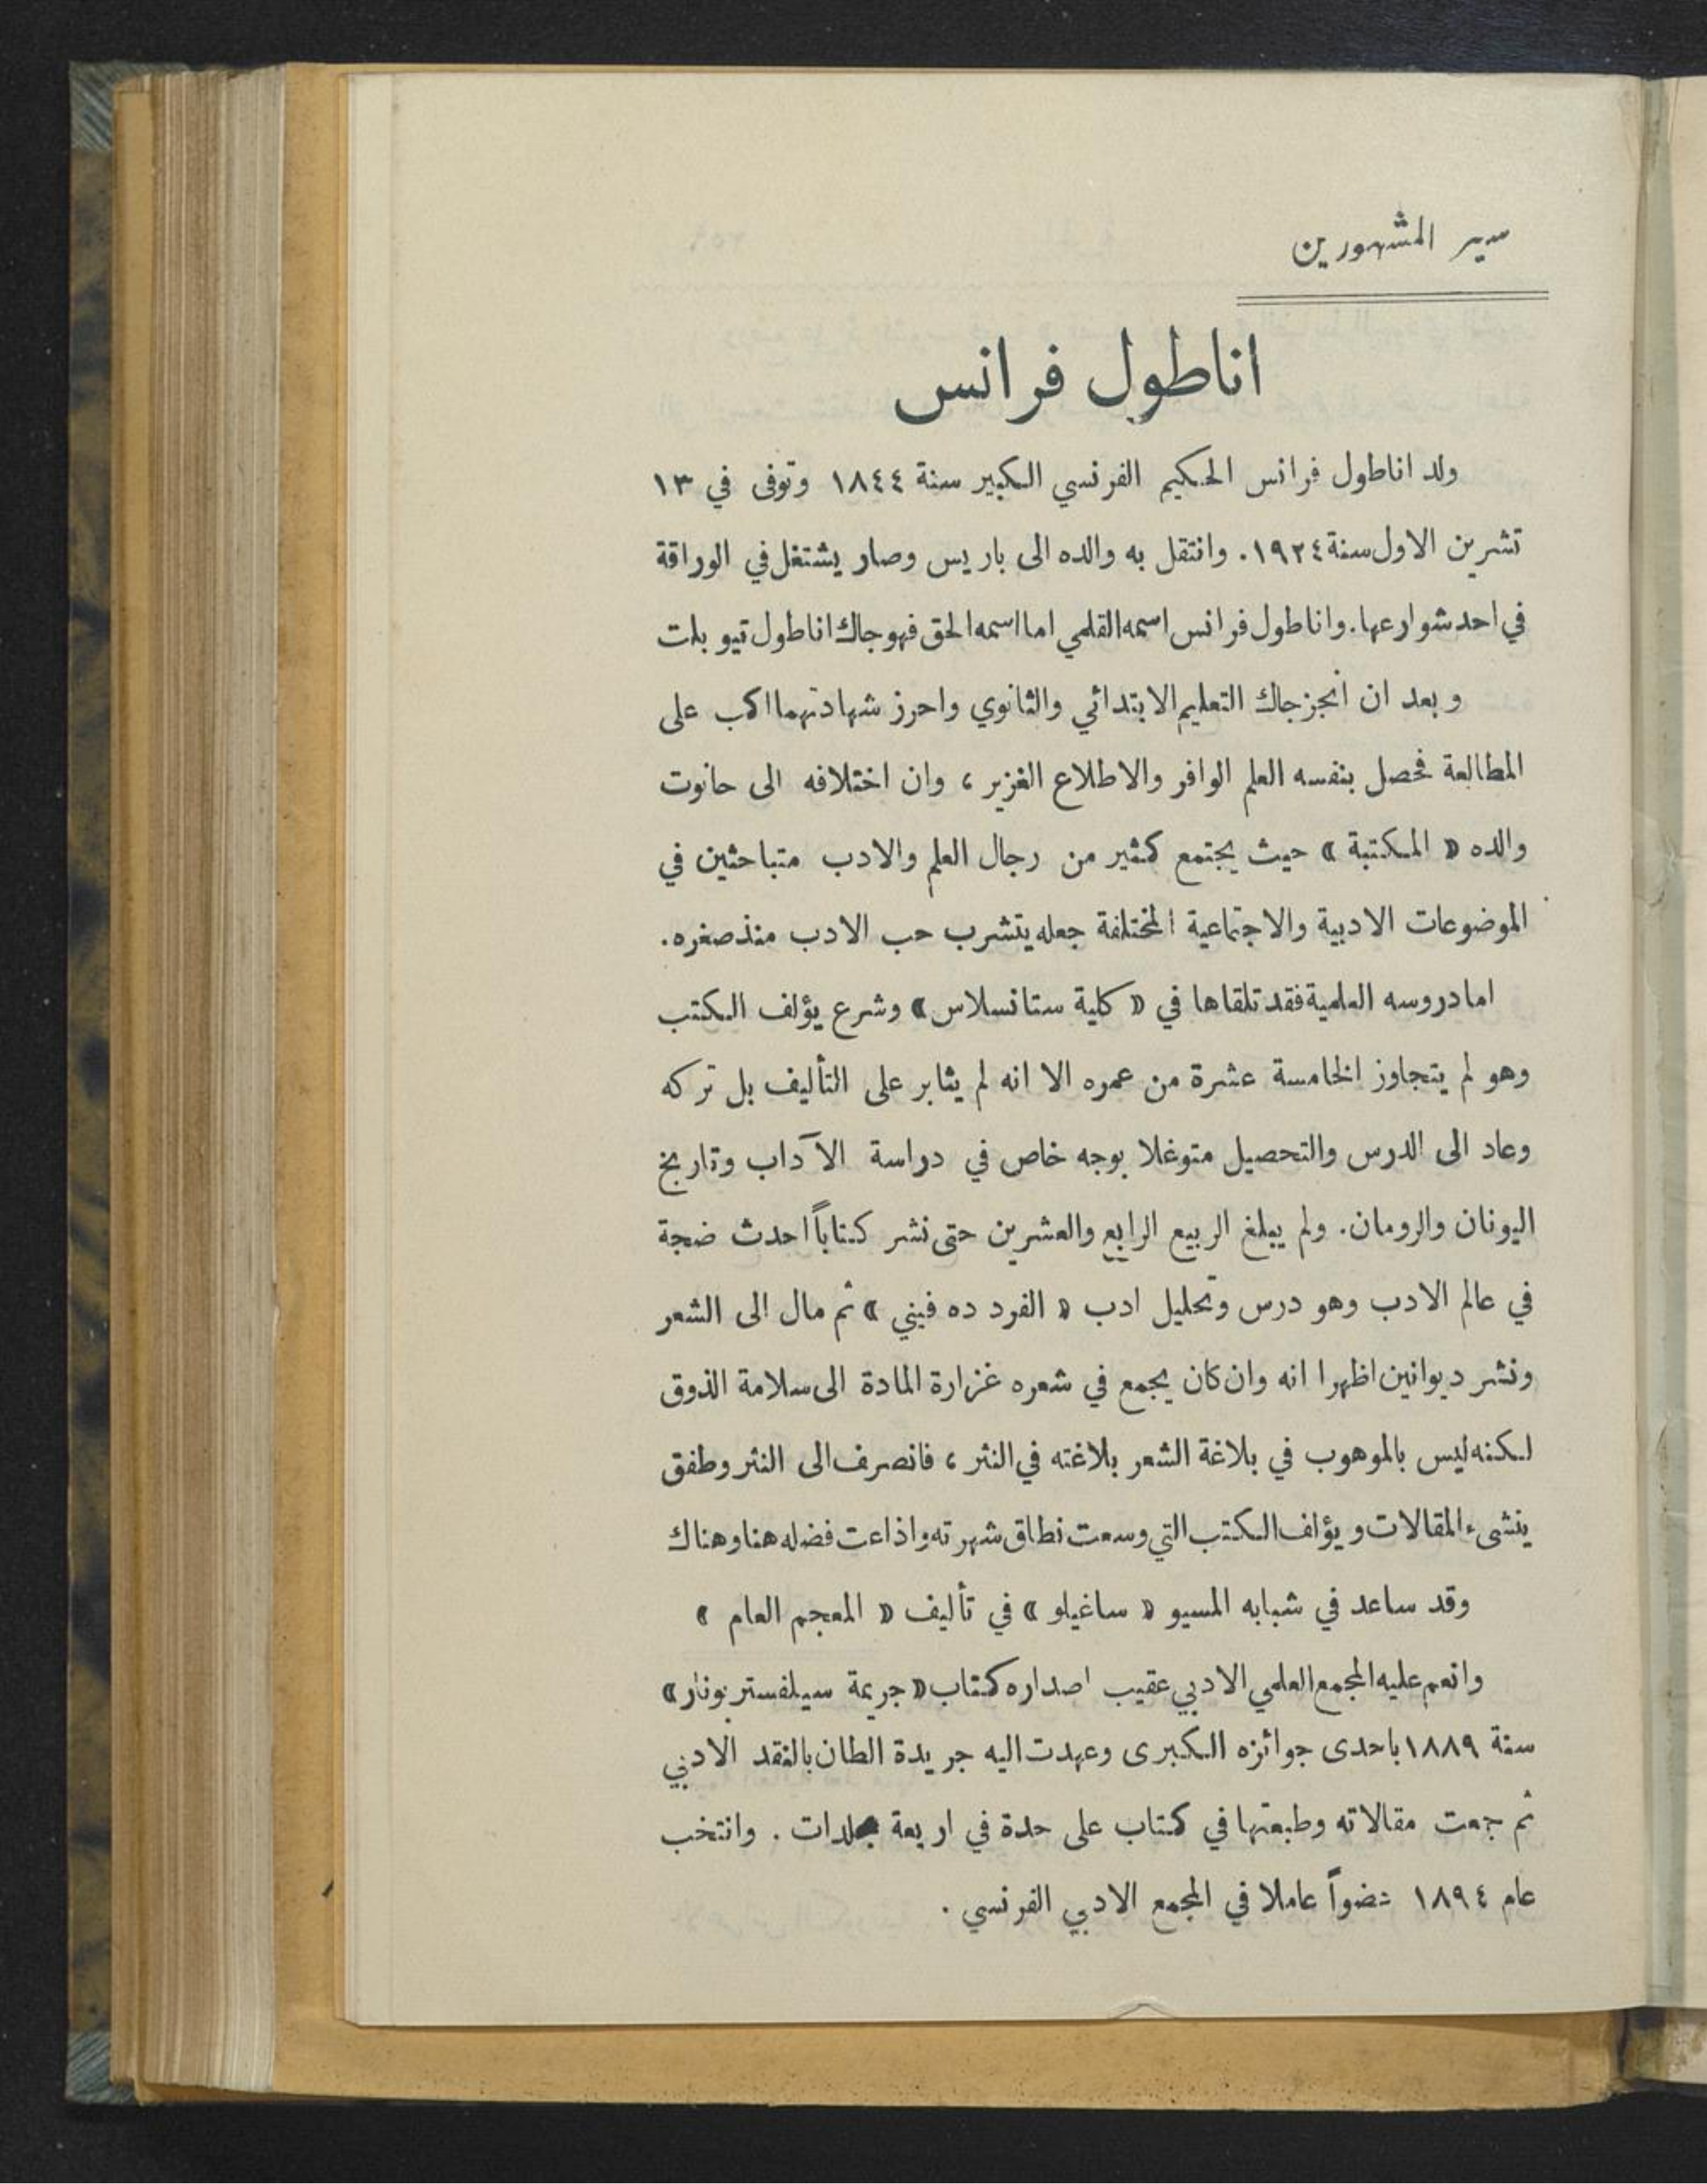 سير المشهورين
اناطول فرانس
ولد اناطول فرانس الحكيم الفرنسي الكبير سنة ١٨٤٤ وتوفى في ١٣
تشرين الاول سنة ١٩٢٤. وانتقل به والده الى باريس وصار يشتغل في الوراقة
في احد شوارعها. واناطول فرانس اسمه القلمي اما اسمه الحق فهو جاك اناطول تيو بلت
وبعد ان انجز جاك التعليم الابتدائي والثانوي واحرز شهادتهما اكب على
المطالعة فحصل بنفسه العلم الوافر والاطلاع الغزير ، وان اختلافه الى حانوت
والده « المكتبة » حيث يجتمع كثير من رجال العلم والادب متباحثين في
الموضوعات الادبية والاجتماعية المختلفة جعله يتشرب حب الادب منذ صغره.
اما دروسه العلمية فقد تلقاها في « كلية ستانسلاس » وشرع يؤلف الكتب
وهو لم يتجاوز الخامسة عشرة من عمره الا انه لم يثابر على التأليف بل تركه
وعاد الى الدرس والتحصيل متوغلا بوجه خاص في دراسة الآداب وتاريخ
اليونان والرومان. ولم يبلغ الربيع الرابع والعشرين حتى نشر كتاباً احدث ضجة
في عالم الادب وهو درس وتحليل ادب « الفرد ده فيني » ثم مال الى الشعر
ونشر ديوانين اظهرا انه وان كان يجمع في شعره غزارة المادة الى سلامة الذوق
لكنه ليس بالموهوب في بلاغة الشعر بلاغته في النثر ، فانصرف الى النثر وطفق
ينشىء المقالات ويؤلف الكتب التي وسعت نطاق شهرته واذاعت فضله هنا وهناك
وقد ساعد في شبابه المسيو « ساغيلو » في تأليف « المعجم العام »
وانعم عليه المجمع العلمي الادبي عقيب اصداره كتاب « جريمة سيلفستر بونار »
سنة ١٨٨٩ باحدى جوائزه الكبرى وعهدت اليه جريدة الطان بالنقد الادبي
ثم جمعت مقالاته وطبعتها في كتاب على حدة في اربعة مجلدات . وانتخب
عام ١٨٩٤ عضواً عاملا في المجمع الادبي الفرنسي .